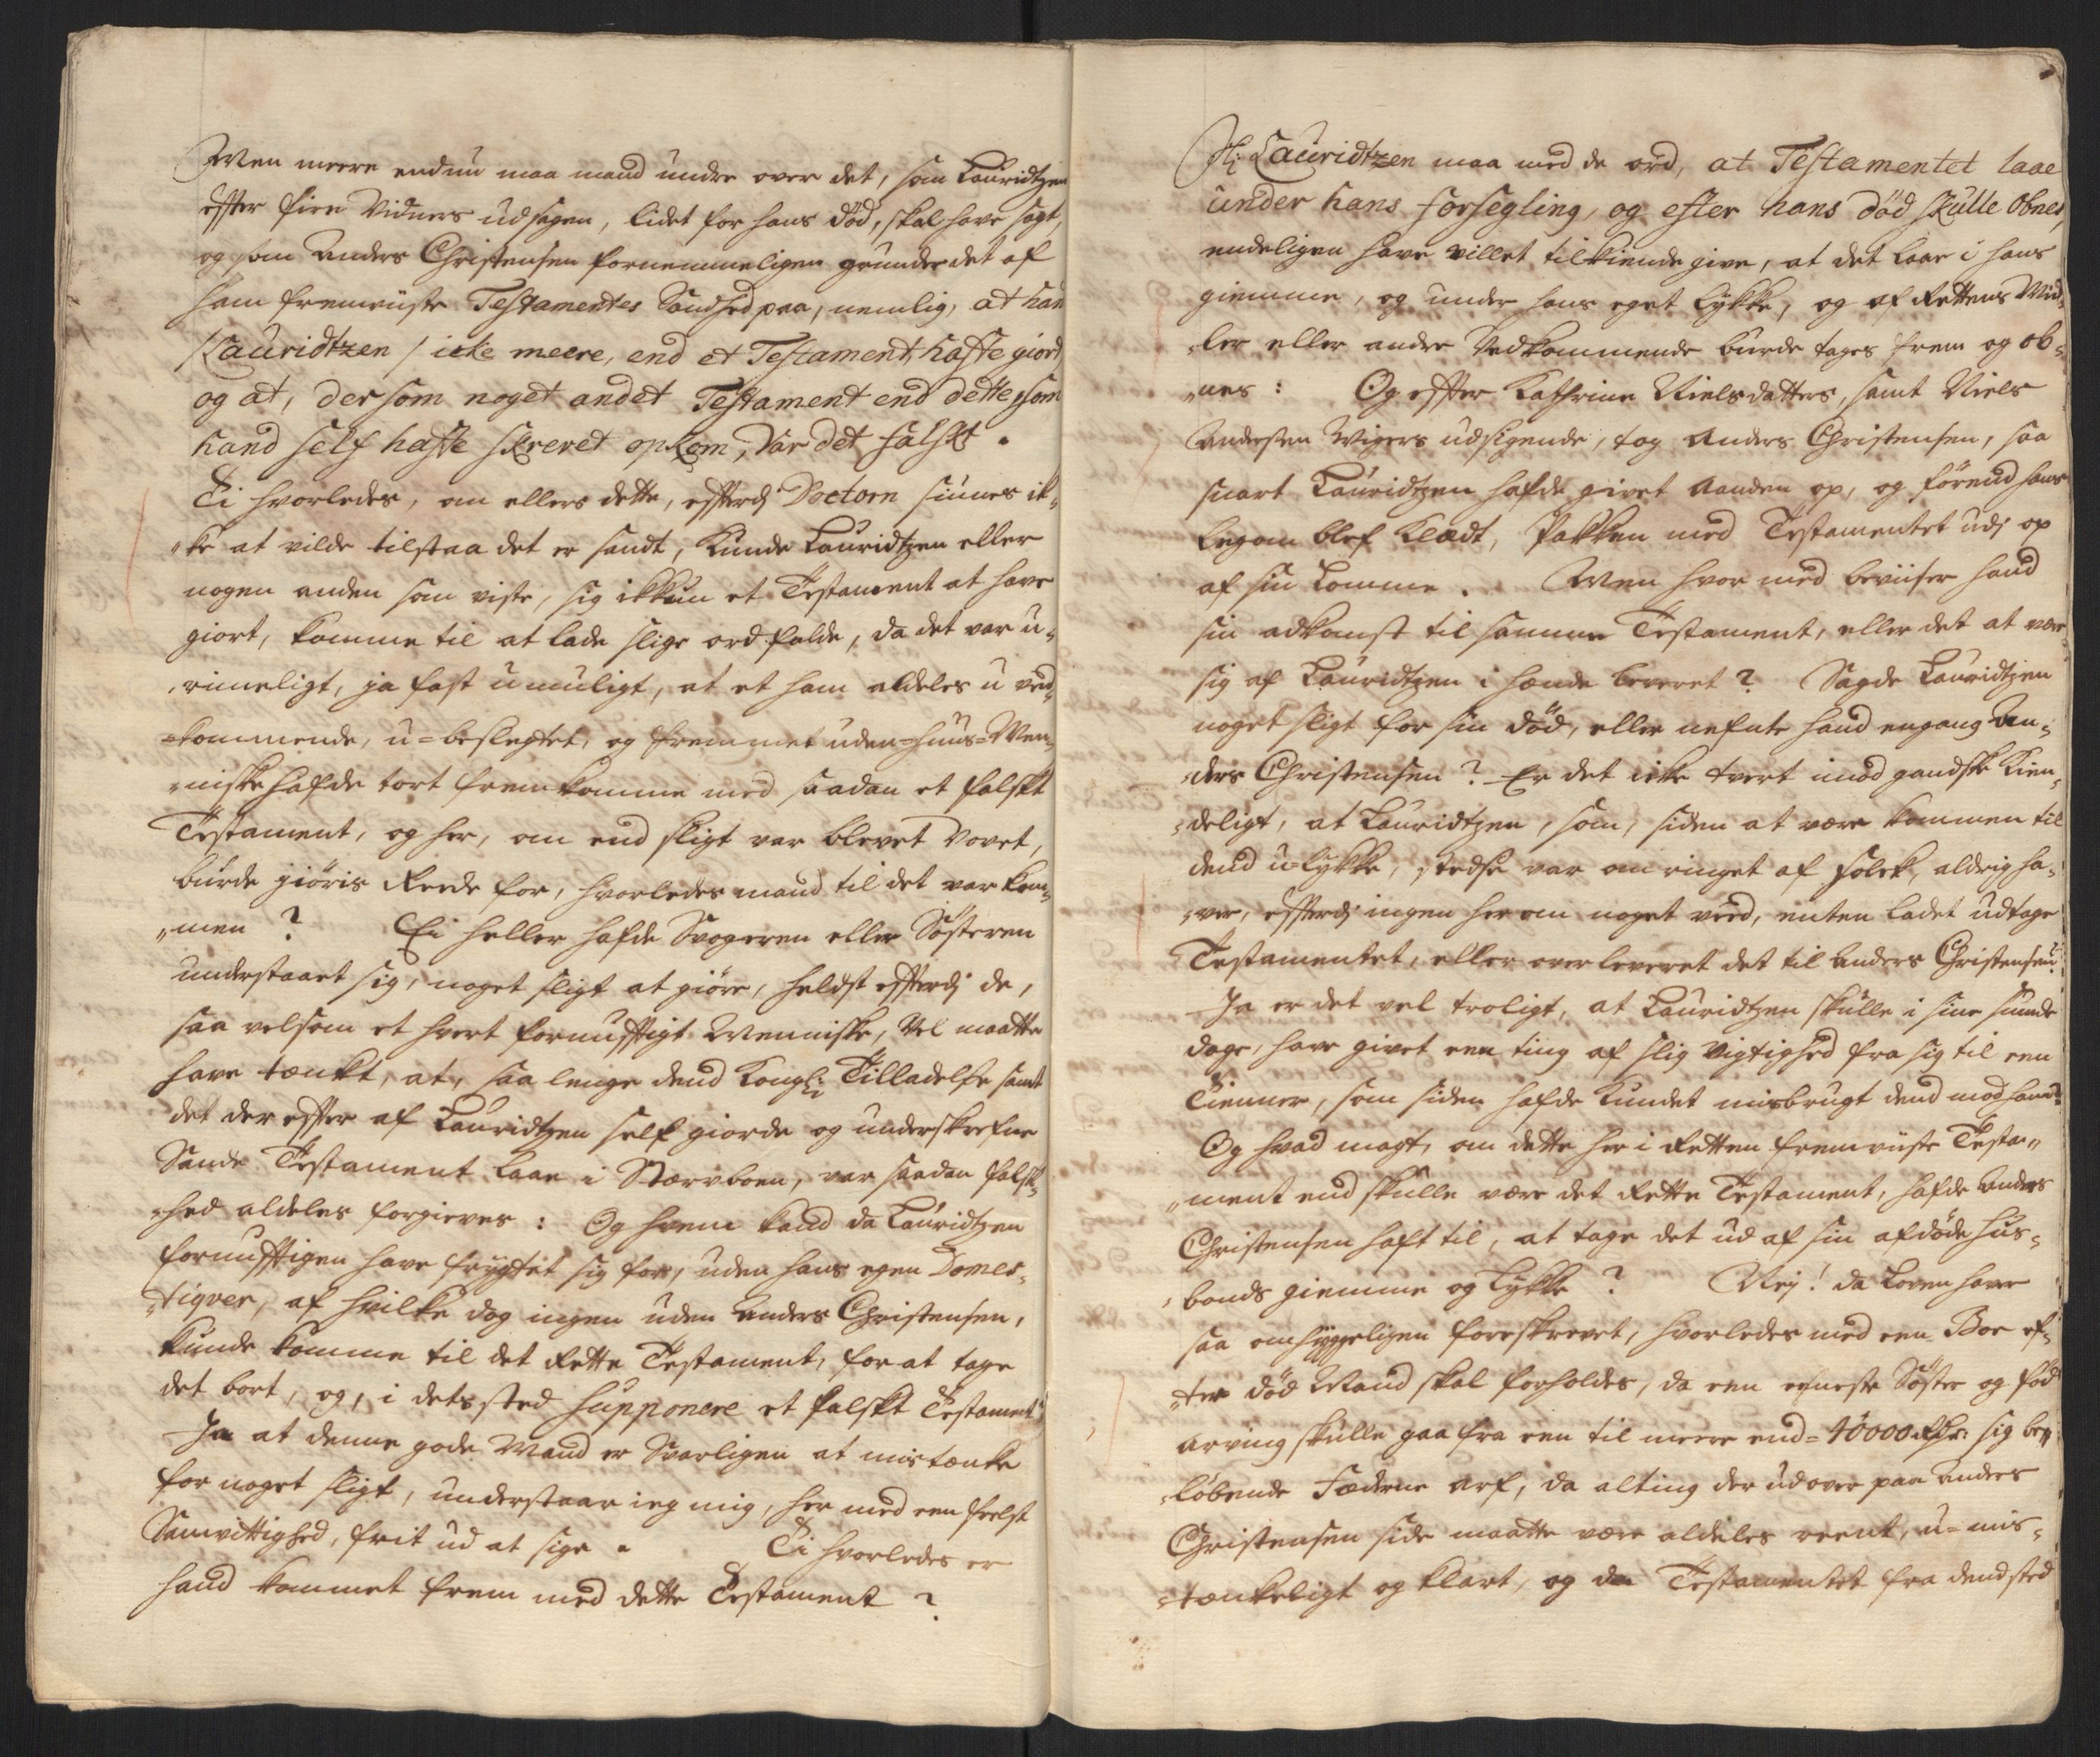 Men meere endnu maa mand undre over det, som Lauridtzen
efter fiire Vidners udsagen, lidet for hans död, skal have sagt,
og som Anders Christensen fornemmeligen grunder det af
ham fremviiste Testamentes Sandhed paa, nemlig, at hand
/Lauridtzen/ icke meere, end et Testament, haffe giort,
og at, dersom noget andet Testament end dette, som
hand self haffe skrevet opkom, Var det falskt.
Ti hvorledes, om ellers dette, efterdj Doctorn siunes ik-
„ke at vilde tilstaa det er sandt, kunde Lauridtzen eller
nogen anden som viste, sig ikkun et Testament at have
giort, komme til at lade slige ord falde, da det var u-
„rimeligt, ja fast umuligt, at et ham aldeles u ved-
„kommende, u-beslegtet, og fremmet uden-huus-Men-
„niske hafde tort fremkomme med saadan et falskt
Testament, og her, om end sligt var blevet Vovet,
burde giöris Reede for, hvorledes mand til det var kom-
„men? Ei heller hafde Svogeren eller Sösteren
understaaet sig, noget sligt at giöre, heldst efterdj de,
saa velsom et hvert fornufftigt Menniske, Vel maatte
have tænkt, at, saa lenge dend Kongl: Tilladelse samt
det der effter af Lauridtzen self giorde og underskrefne
Sande Testament laae i Stervboen, var saadan falsk-
„hed aldeles forgieves: Og hvem kand da Lauridtzen
fornufftigen have frygtet sig for, uden hans egen Domes-
„tiqver, af hvilke dog ingen uden Anders Christensen,
kunde komme til det Rette Testament, for at tage
det bort, og, i dets sted supponere et falskt Testament?
Ja at denne gode Mand er Svarligen at mistænke
for noget sligt, understaar ieg mig, her med een frelst
Samvittighed, frit ud at sige. Ti hvorledes er
hand kommet frem med dette Testament?
Hr: Lauridtzen maa med de ord, at Testamentet laae
under hans forsegling, og efter hans död skulle Obnes,
endeligen have villet tilkiende give, at det laae i hans
giemme, og under hans eget lykke, og af Rettens Mid-
„ler eller andre Vedkommende burde tages frem og ob-
„nes: Og effter Cathrine Nielsdatters, samt Niels
Andersen Wigers udsigende, tog Anders Christensen, saa
snart Lauridtzen hafde givet Aanden op, og förend hans
legom blef klædt, Pakken med Testamentet udj op
af sin Lomme. Men hvor med beviiser hand
sin adkomst til samme Testament, eller det at være
sig af Lauridtzen i hænde leveret? Sagde Lauridtzen
noget sligt for sin död, eller nefnte hand engang An-
„ders Christensen? Er det icke tvert imod gandske kien-
„deligt, at Lauridtzen, som, siden at være kommen til
dend u-lykke, stedse var om ringet af folck, aldrig ha-
„ver, efterdj ingen her om noget veed, enten ladet udtage
Testamentet, eller overleveret det til Anders Christensen?
Ja er det vel troligt, at Lauridtzen skulle i sine sunde
dage, have givet een ting af slig Vigtighed fra sig til een
Tienner, som siden hafde kundet misbrugt dend mod hand?
Og hvad magt, om dette her i Retten fremviiste Testa-
„ment end skulle være det Rette Testament, hafde Anders
Christensen haft til, at tage det ud af sin afdöde Hus-
„bonds giemme og Lykke? Nej! da Loven haver
saa omhyggeligen foreskrevet, hvorledes med een Boe ef-
„ter död Mand skal forholdes, da een eeneste Söster og föd
Arving skulle gaa fra een til meere end = 10000 Rdr: sig be-
„löbende Fæderne Arf, da alting der udover paa Anders
Christensen side maatte være aldeles reent, u-mis-
„tænkeligt og klart, og da Testamentet fra dend sted